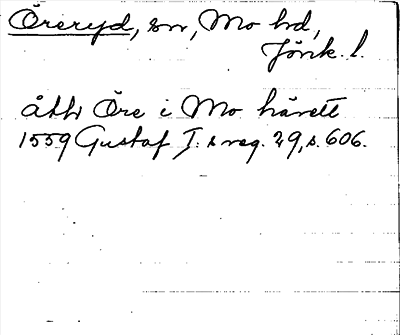 Öreryd, sn, Mo hd,
Jönk. l.
åtth Öre i Mo härett
1559 Gustaf I:s reg. 29, s. 606.